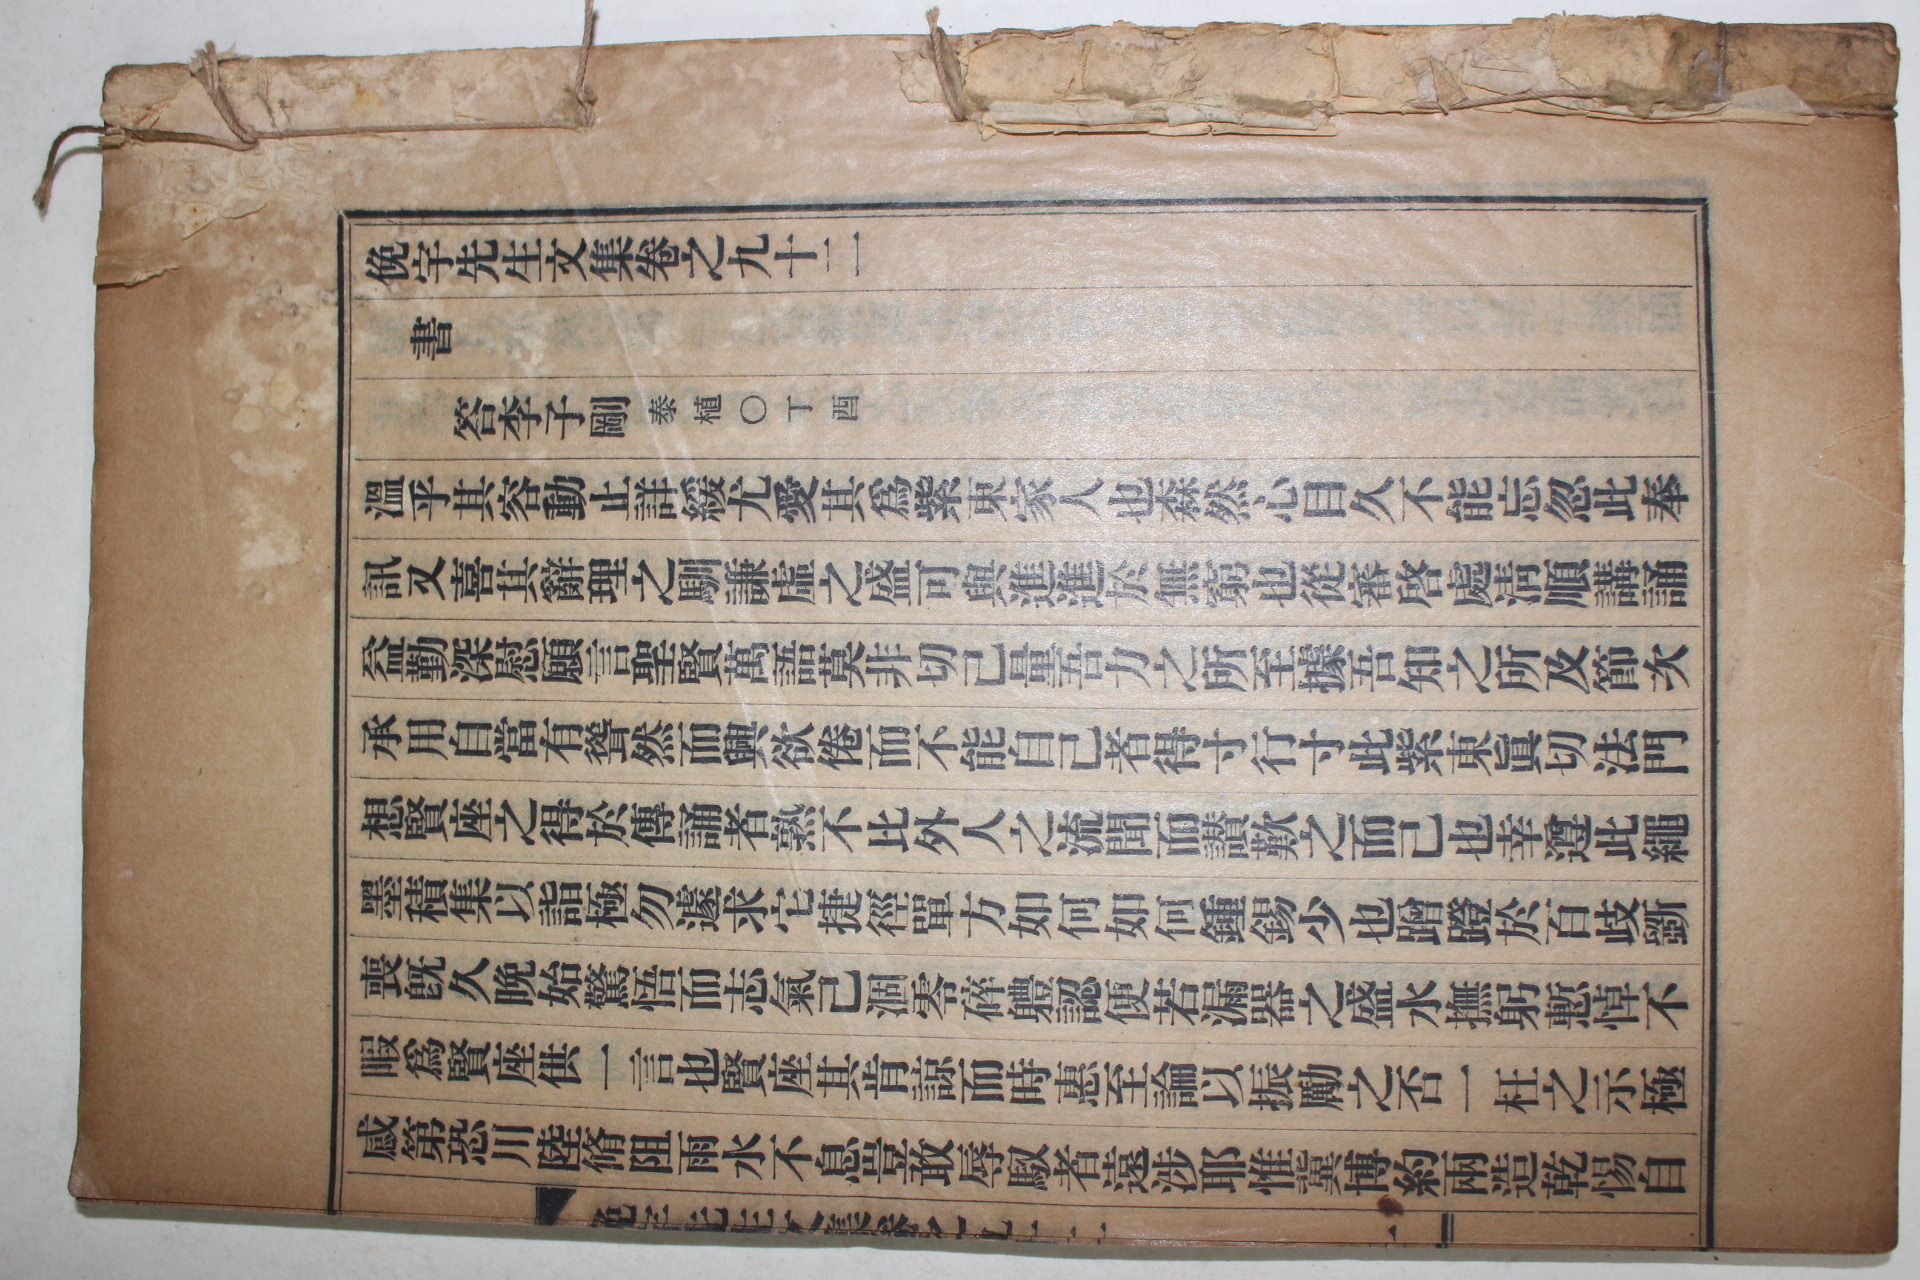 俛宇先生文集卷之九十二
書
答李子剛泰植○丁酉
溫乎其容動止詳緩尤愛其爲紫東家人也森然心目久不能忘忽此奉
訊又喜其辭理之馴謙虛之盛可與進進於無窮也從審啓處淸順講誦
益勤深慰願言聖賢萬語莫非切己量吾力之所至據吾知之所及節次
承用自當有聳然而興欲倦而不能自己者得寸行寸此紫東眞切法門
想賢座之得於傳誦者熟不比外人之流聞而讃歎之而己也幸遵此繩
墨積集以詣極勿遽求它捷徑單方如何如何鍾錫少也蹭蹬於百歧斲
喪旣久晚始驚悟而志氣己涸零碎軆認便若漏器之盛水撫躬慙悼不
暇爲賢座供一言也賢座其肯諒而時惠至論以振勵之否一枉之示極
感第恐川陸脩阻雨水不息豈敢辱馭者遠涉耶惟冀博約兩造乾惕自
俛宇先生文集卷之九十二
一